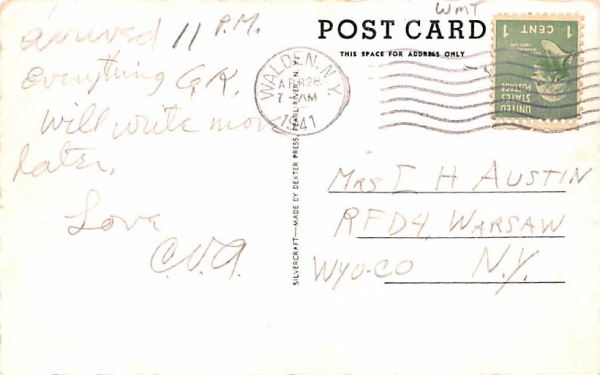 arrived 11 P.M.
everything O.K.
Will write more
later.
Love
C.V.A.
WMT
POST CARD
THIS SPACE FOR ADDRESS ONLY
WALDEN, N.Y.
APR 28
7 AM
1941
1 CENT 1
UNITED
STATES
POSTAGE
SILVERCRAFT—MADE BY DEXTER PRESS, PEARL RIVER, N.Y.
MRS I H AUSTIN
RFD4, WARSAW
WYO-CO N.Y.